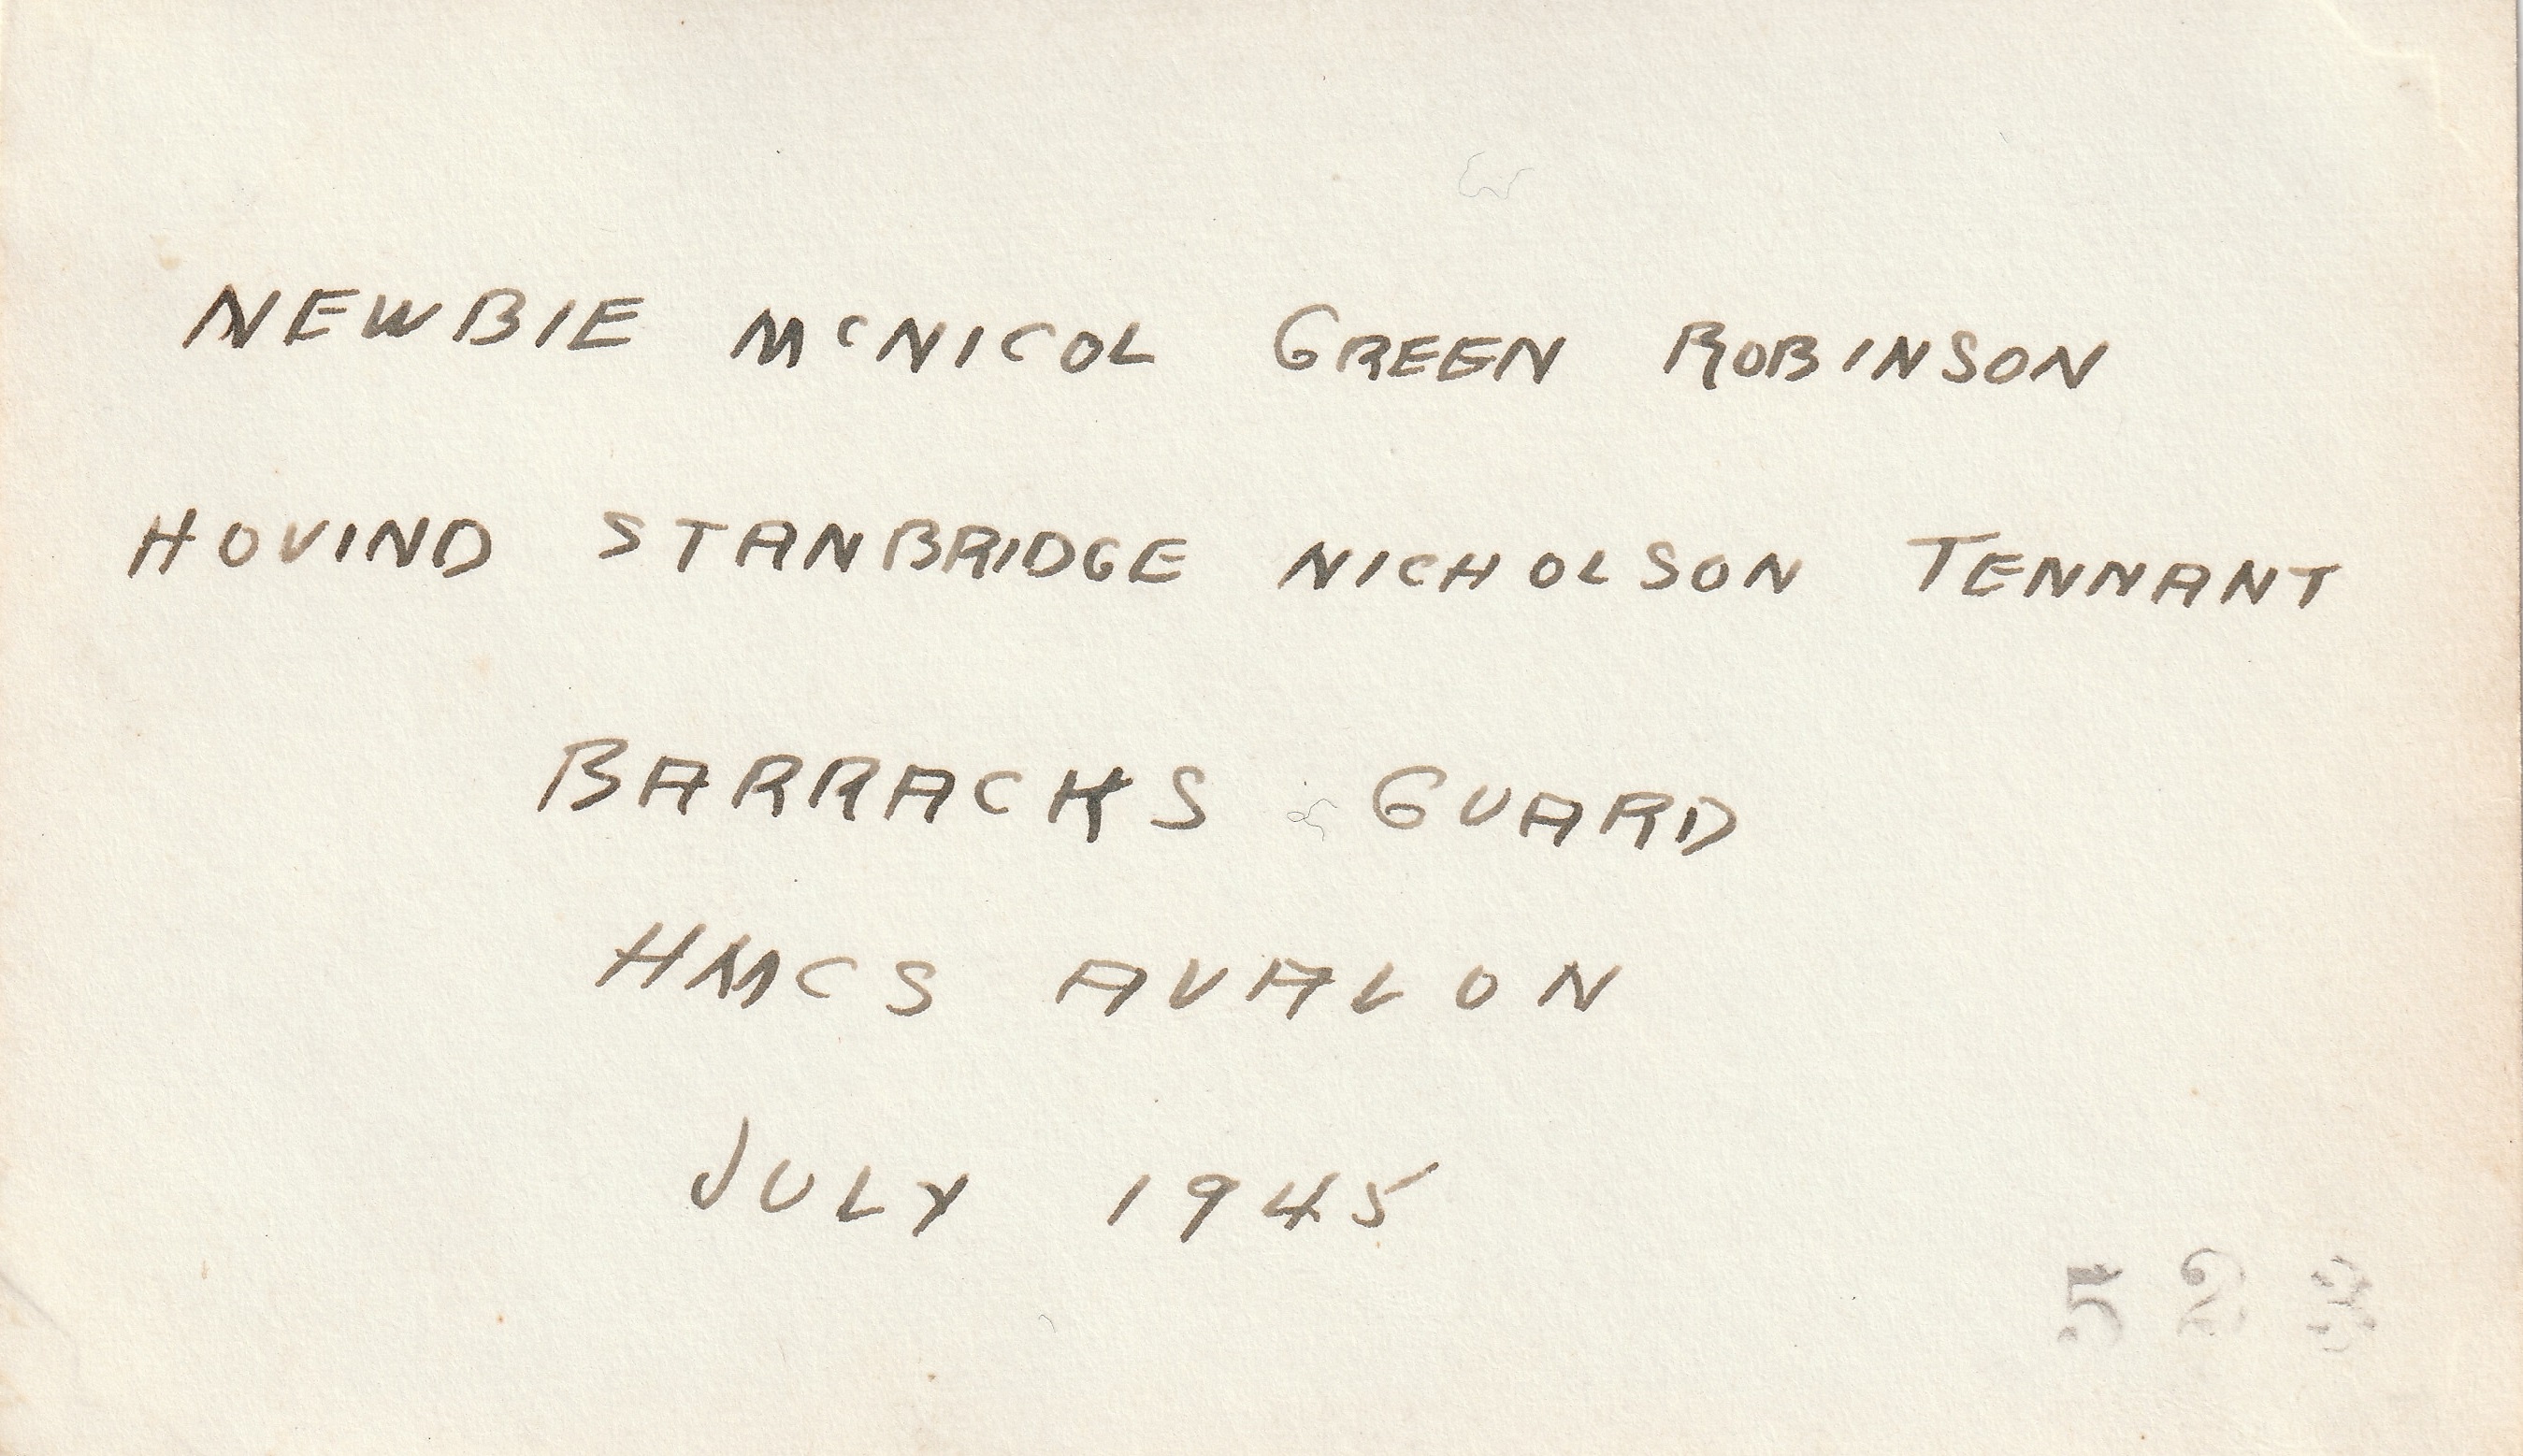 NEWBIE McNICOL GREEN ROBINSON
HOVIND STANBRIDGE NICHOLSON TENNANT
BARRACKS GUARD
HMCS AVALON
JULY 1945
523